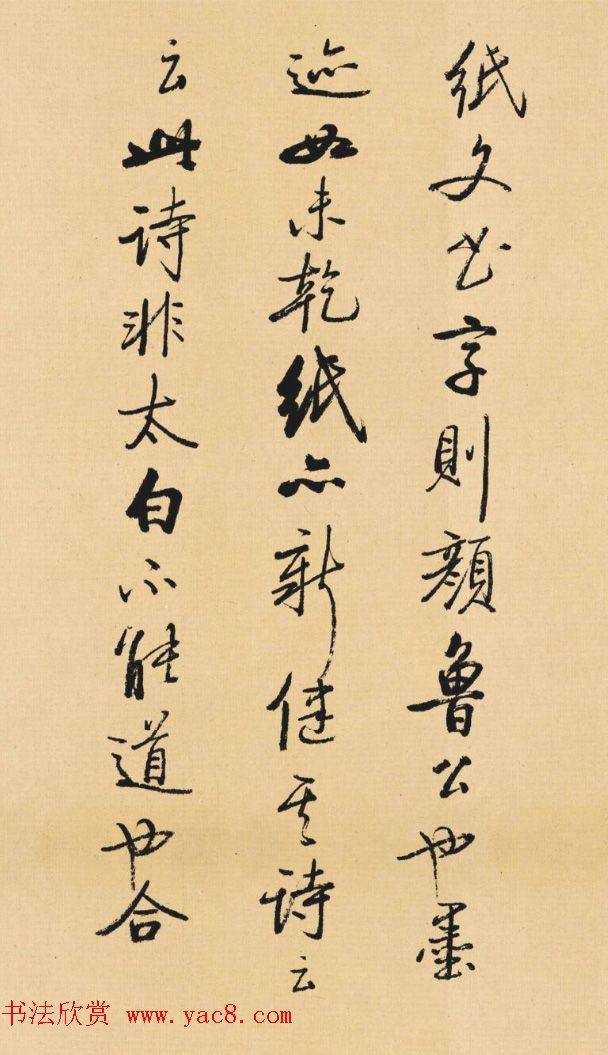 纸文书字則顔魯公也墨
迹如未乾纸亦新健其诗云
云此诗非太白不能道也合
书法欣赏 www.yac8.com